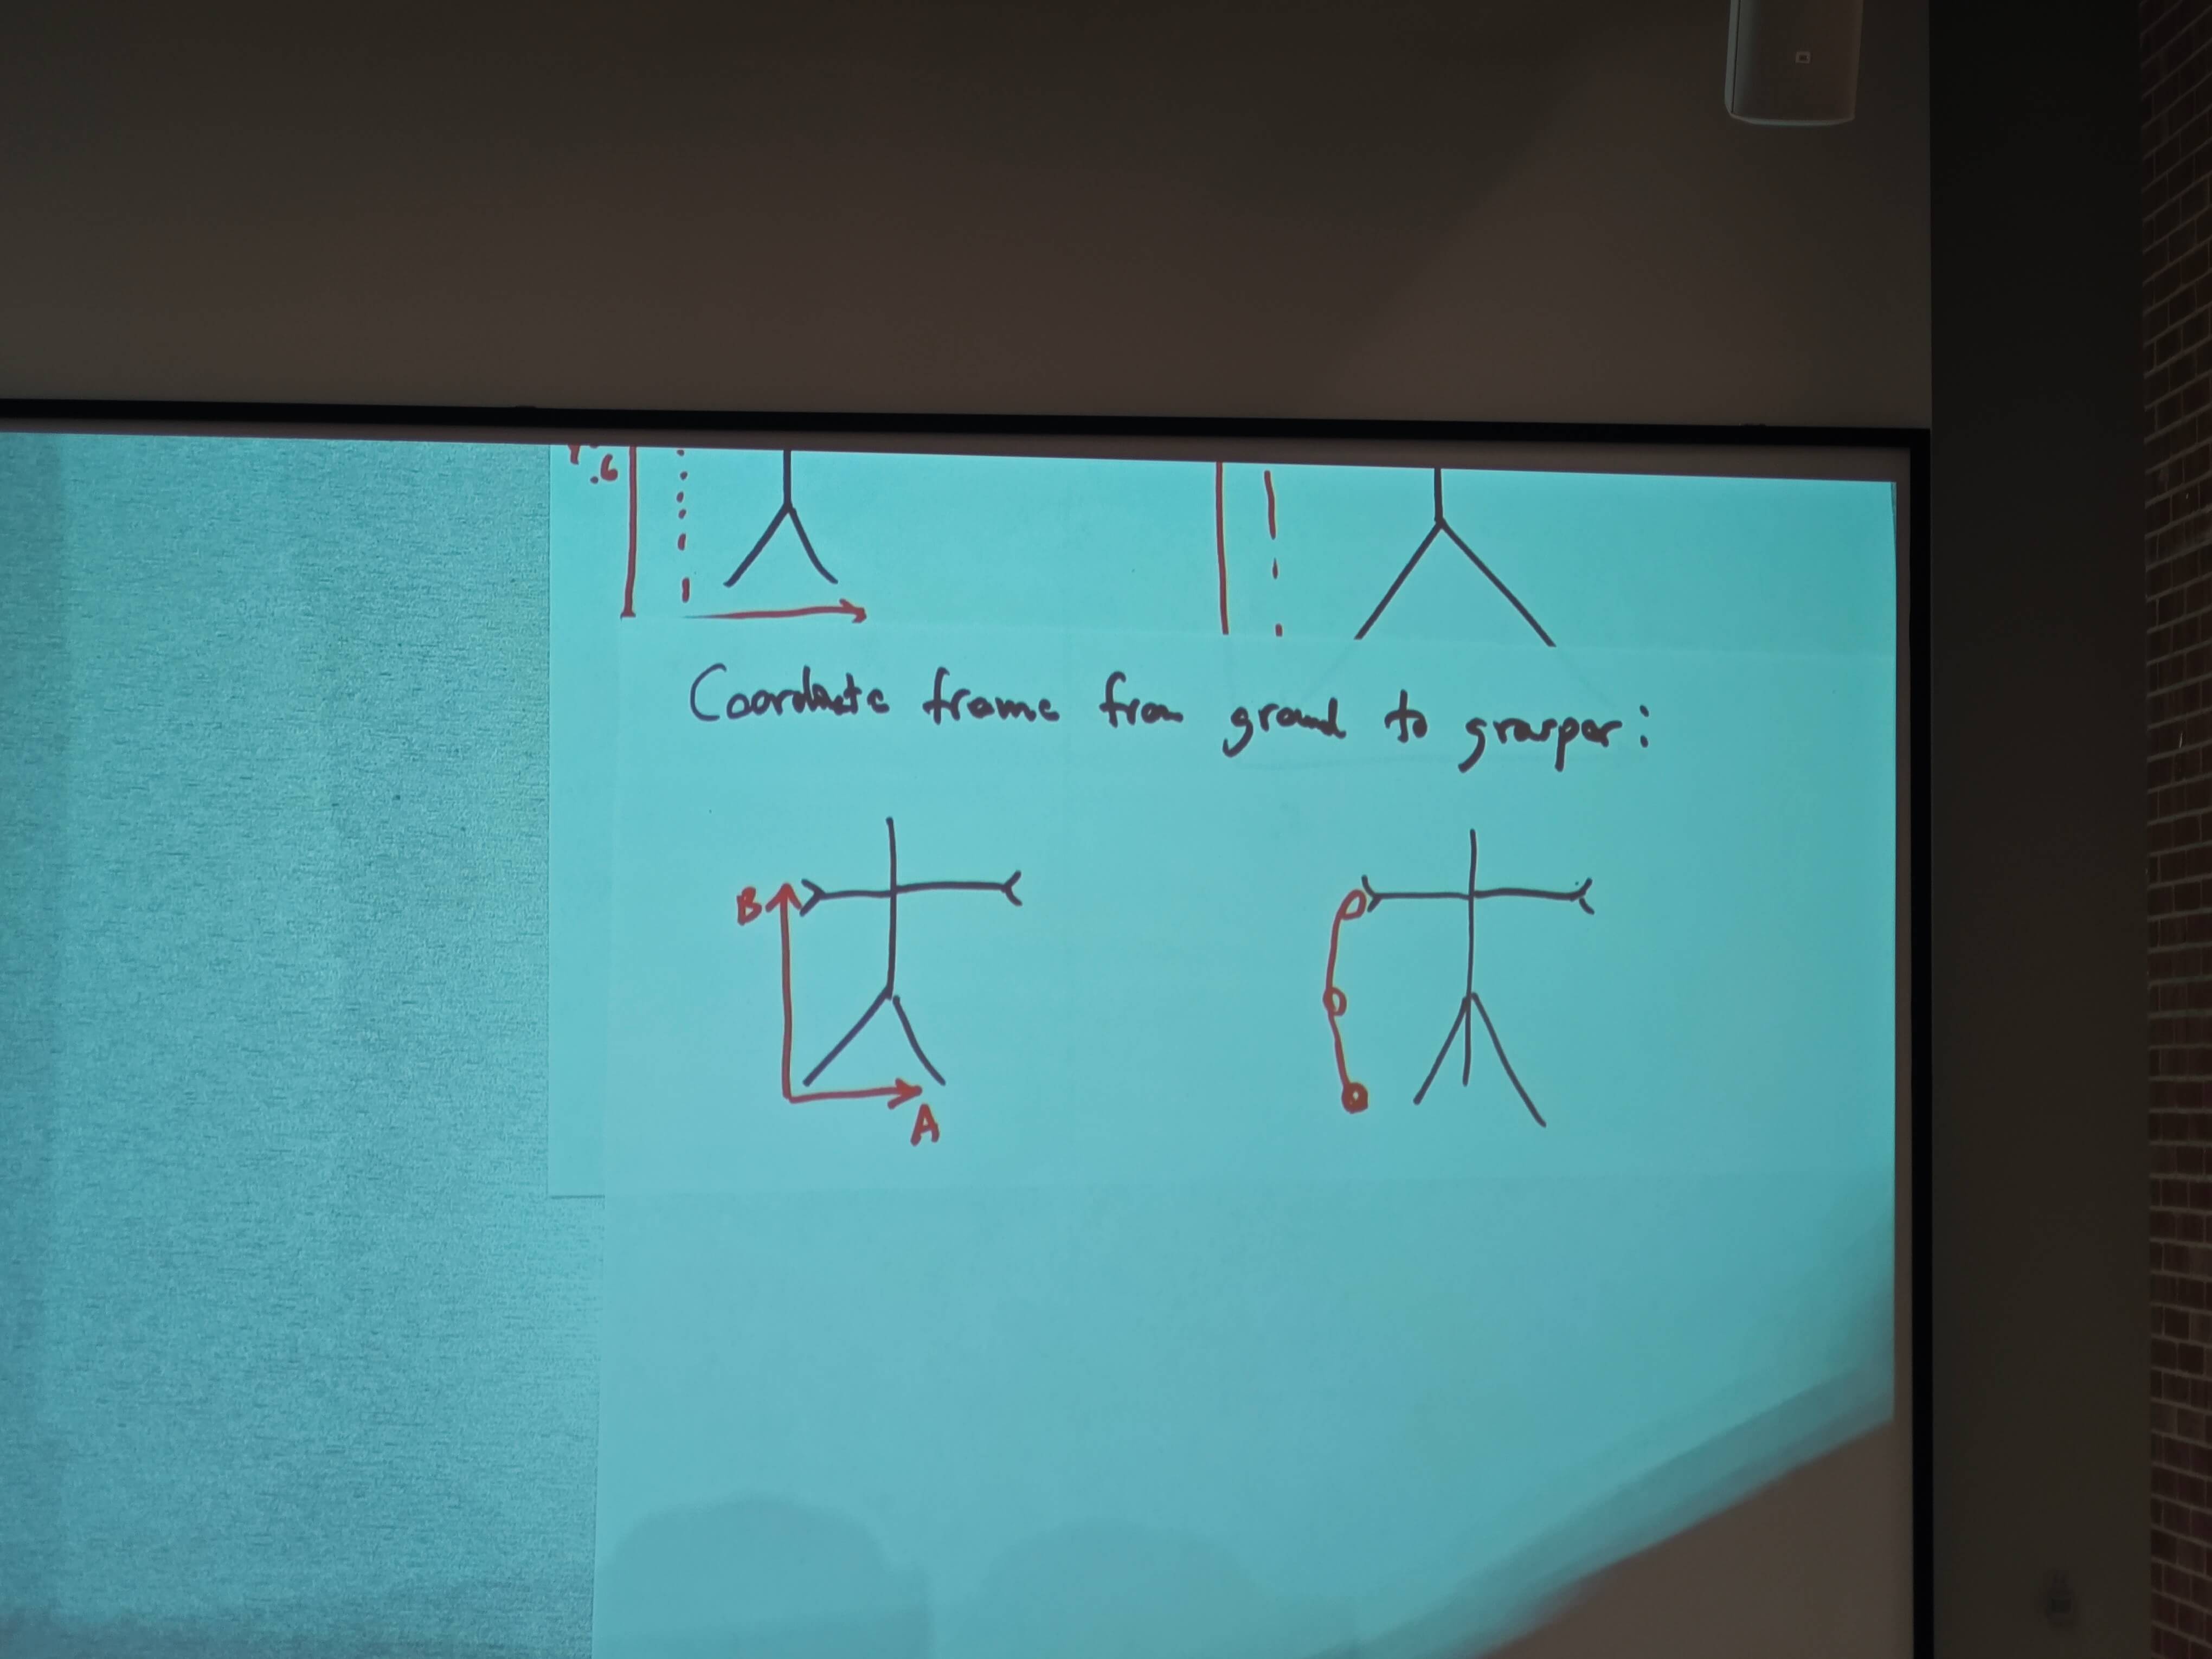 .6
Coordinate frame from ground to grasper:
B
A